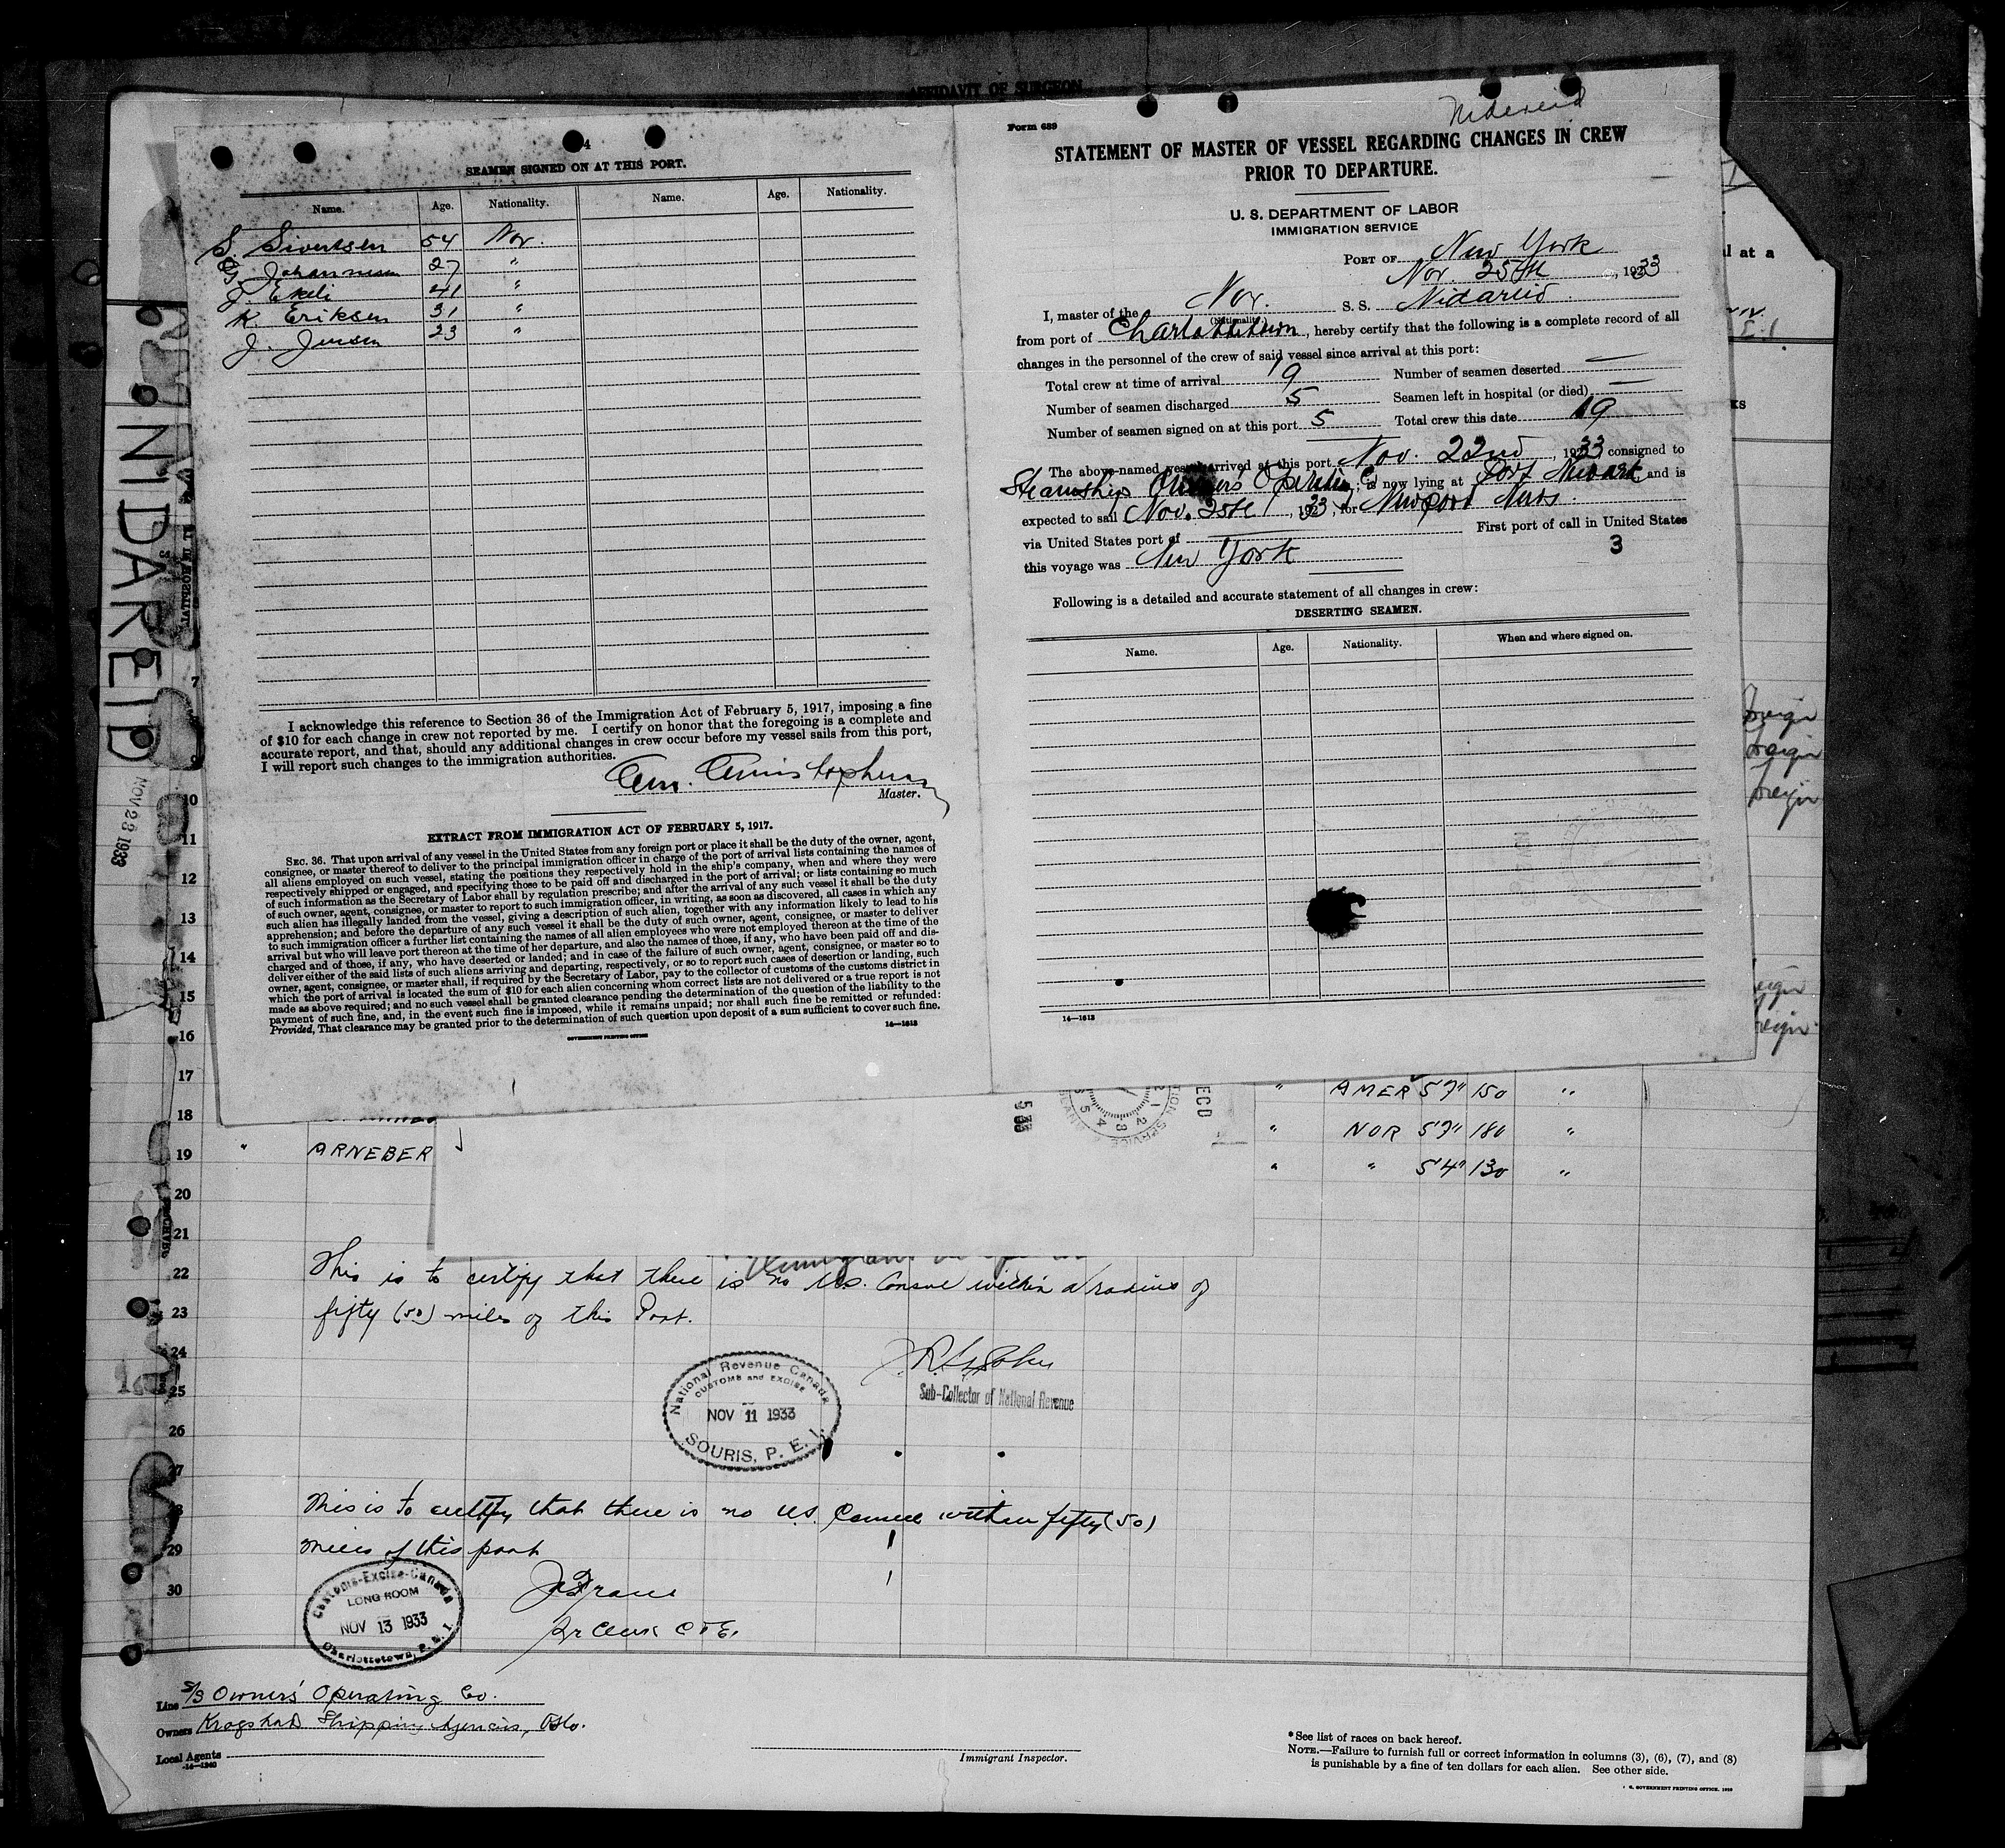 AFFIDAVIT OF SURGEON
4
SEAMEN SIGNED ON AT THIS PORT.
Name. Age. Nationality. Name. Age. Nationality.
S. Sivertsen 54 Nor.
G. Johannesen 27 "
J. Ekeli 41 "
K. Eriksen 31 "
J. Jensen 23 "
I acknowledge this reference to Section 36 of the Immigration Act of February 5, 1917, imposing a fine
of $10 for each change in crew not reported by me. I certify on honor that the foregoing is a complete and
accurate report, and that, should any additional changes in crew occur before my vessel sails from this port,
I will report such changes to the immigration authorities.
Master.
EXTRACT FROM IMMIGRATION ACT OF FEBRUARY 5, 1917.
SEC. 36. That upon arrival of any vessel in the United States from any foreign port or place it shall be the duty of the owner, agent,
consignee, or master thereof to deliver to the principal immigration officer in charge of the port of arrival lists containing the names of
all aliens employed on such vessel, stating the positions they respectively hold in the ship's company, when and where they were
respectively shipped or engaged, and specifying those to be paid off and discharged in the port of arrival; or lists containing so much
of such information as the Secretary of Labor shall by regulation prescribe; and after the arrival of any such vessel it shall be the duty
of such owner, agent, consignee, or master to report to such immigration officer, in writing, as soon as discovered, all cases in which any
such alien has illegally landed from the vessel, giving a description of such alien, together with any information likely to lead to his
apprehension; and before the departure of any such vessel it shall be the duty of such owner, agent, consignee, or master to deliver
to such immigration officer a further list containing the names of all alien employees who were not employed thereon at the time of the
arrival but who will leave port thereon at the time of her departure, and also the names of those, if any, who have been paid off and dis-
charged and of those, if any, who have deserted or landed; and in case of the failure of such owner, agent, consignee, or master so to
deliver either of the said lists of such aliens arriving and departing, respectively, or so to report such cases of desertion or landing, such
owner, agent, consignee, or master shall, if required by the Secretary of Labor, pay to the collector of customs of the customs district in
which the port of arrival is located the sum of $10 for each alien concerning whom correct lists are not delivered or a true report is not
made as above required; and no such vessel shall be granted clearance pending the determination of the question of the liability to the
payment of such fine, and, in the event such fine is imposed, while it remains unpaid; nor shall such fine be remitted or refunded:
Provided, That clearance may be granted prior to the determination of such question upon deposit of a sum sufficient to cover such fine.
14—1613
GOVERNMENT PRINTING OFFICE
Form 689
Nidareid
STATEMENT OF MASTER OF VESSEL REGARDING CHANGES IN CREW
PRIOR TO DEPARTURE.
U. S. DEPARTMENT OF LABOR
IMMIGRATION SERVICE
PORT OF New York
Nov. 25th, 1933
I, master of the Nor. S. S. Nidareid
(Nationality.)
from port of Charlottetown, hereby certify that the following is a complete record of all
changes in the personnel of the crew of said vessel since arrival at this port:
Total crew at time of arrival 19 Number of seamen deserted —
Number of seamen discharged 5 Seamen left in hospital (or died) —
Number of seamen signed on at this port 5 Total crew this date 19
The above-named vessel arrived at this port Nov. 22nd, 1933 consigned to
Steamship Owners' Operating Co; is now lying at Port Newark and is
expected to sail Nov. 25th, 1933, for Newport News.
via United States port of First port of call in United States
this voyage was New York 3
Following is a detailed and accurate statement of all changes in crew:
DESERTING SEAMEN.
Name. Age. Nationality. When and where signed on.
14—1613
NIDAREID
NOV 28 1933
7
9
10
11
12
13
14
15
16
17 " AMER 5'7" 150 "
18 " NOR 5'7" 180 "
19 " ARNEBER " " 5'4" 130 "
20
21
22 This is to certify that there is no U.S. Consul within a radius of
23 fifty (50) miles of this Port.
24
Sub-Collector of National Revenue
25
26
National Revenue Canada
CUSTOMS and EXCISE
NOV 11 1933
SOURIS, P. E. I.
27
28 This is to certify that there is no U.S. Consul within fifty (50)
29 miles of this port
30
Customs-Excise-Canada
LONG ROOM
NOV 13 1933
Charlottetown, P. E. I.
Line S/S Owners' Operating Co.
Owners Krogstad Shipping Agencies, Oslo.
Local Agents
14—1240
Immigrant Inspector.
*See list of races on back hereof.
NOTE.—Failure to furnish full or correct information in columns (3), (6), (7), and (8)
is punishable by a fine of ten dollars for each alien. See other side.